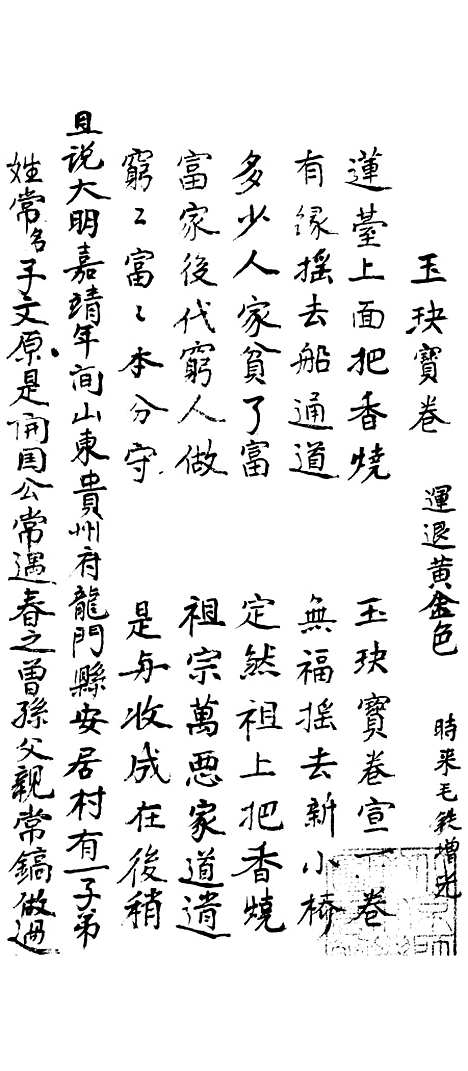 玉玦寶卷 運退黄金色 時来毛鉄增光
蓮臺上面把香燒 玉玦寶卷宣一卷
有緣摇去船通道 無福摇去新小橋
多少人家貧了富 定然祖上把香燒
富家後代窮人做 祖宗萬悪家道消
窮〻富〻本分守 是毋收成在後稍
且说大明嘉靖年间山東貴州府龍門縣安居村有一子弟
姓常名子文原是開国公常遇春之曽孫父親常鎬做過